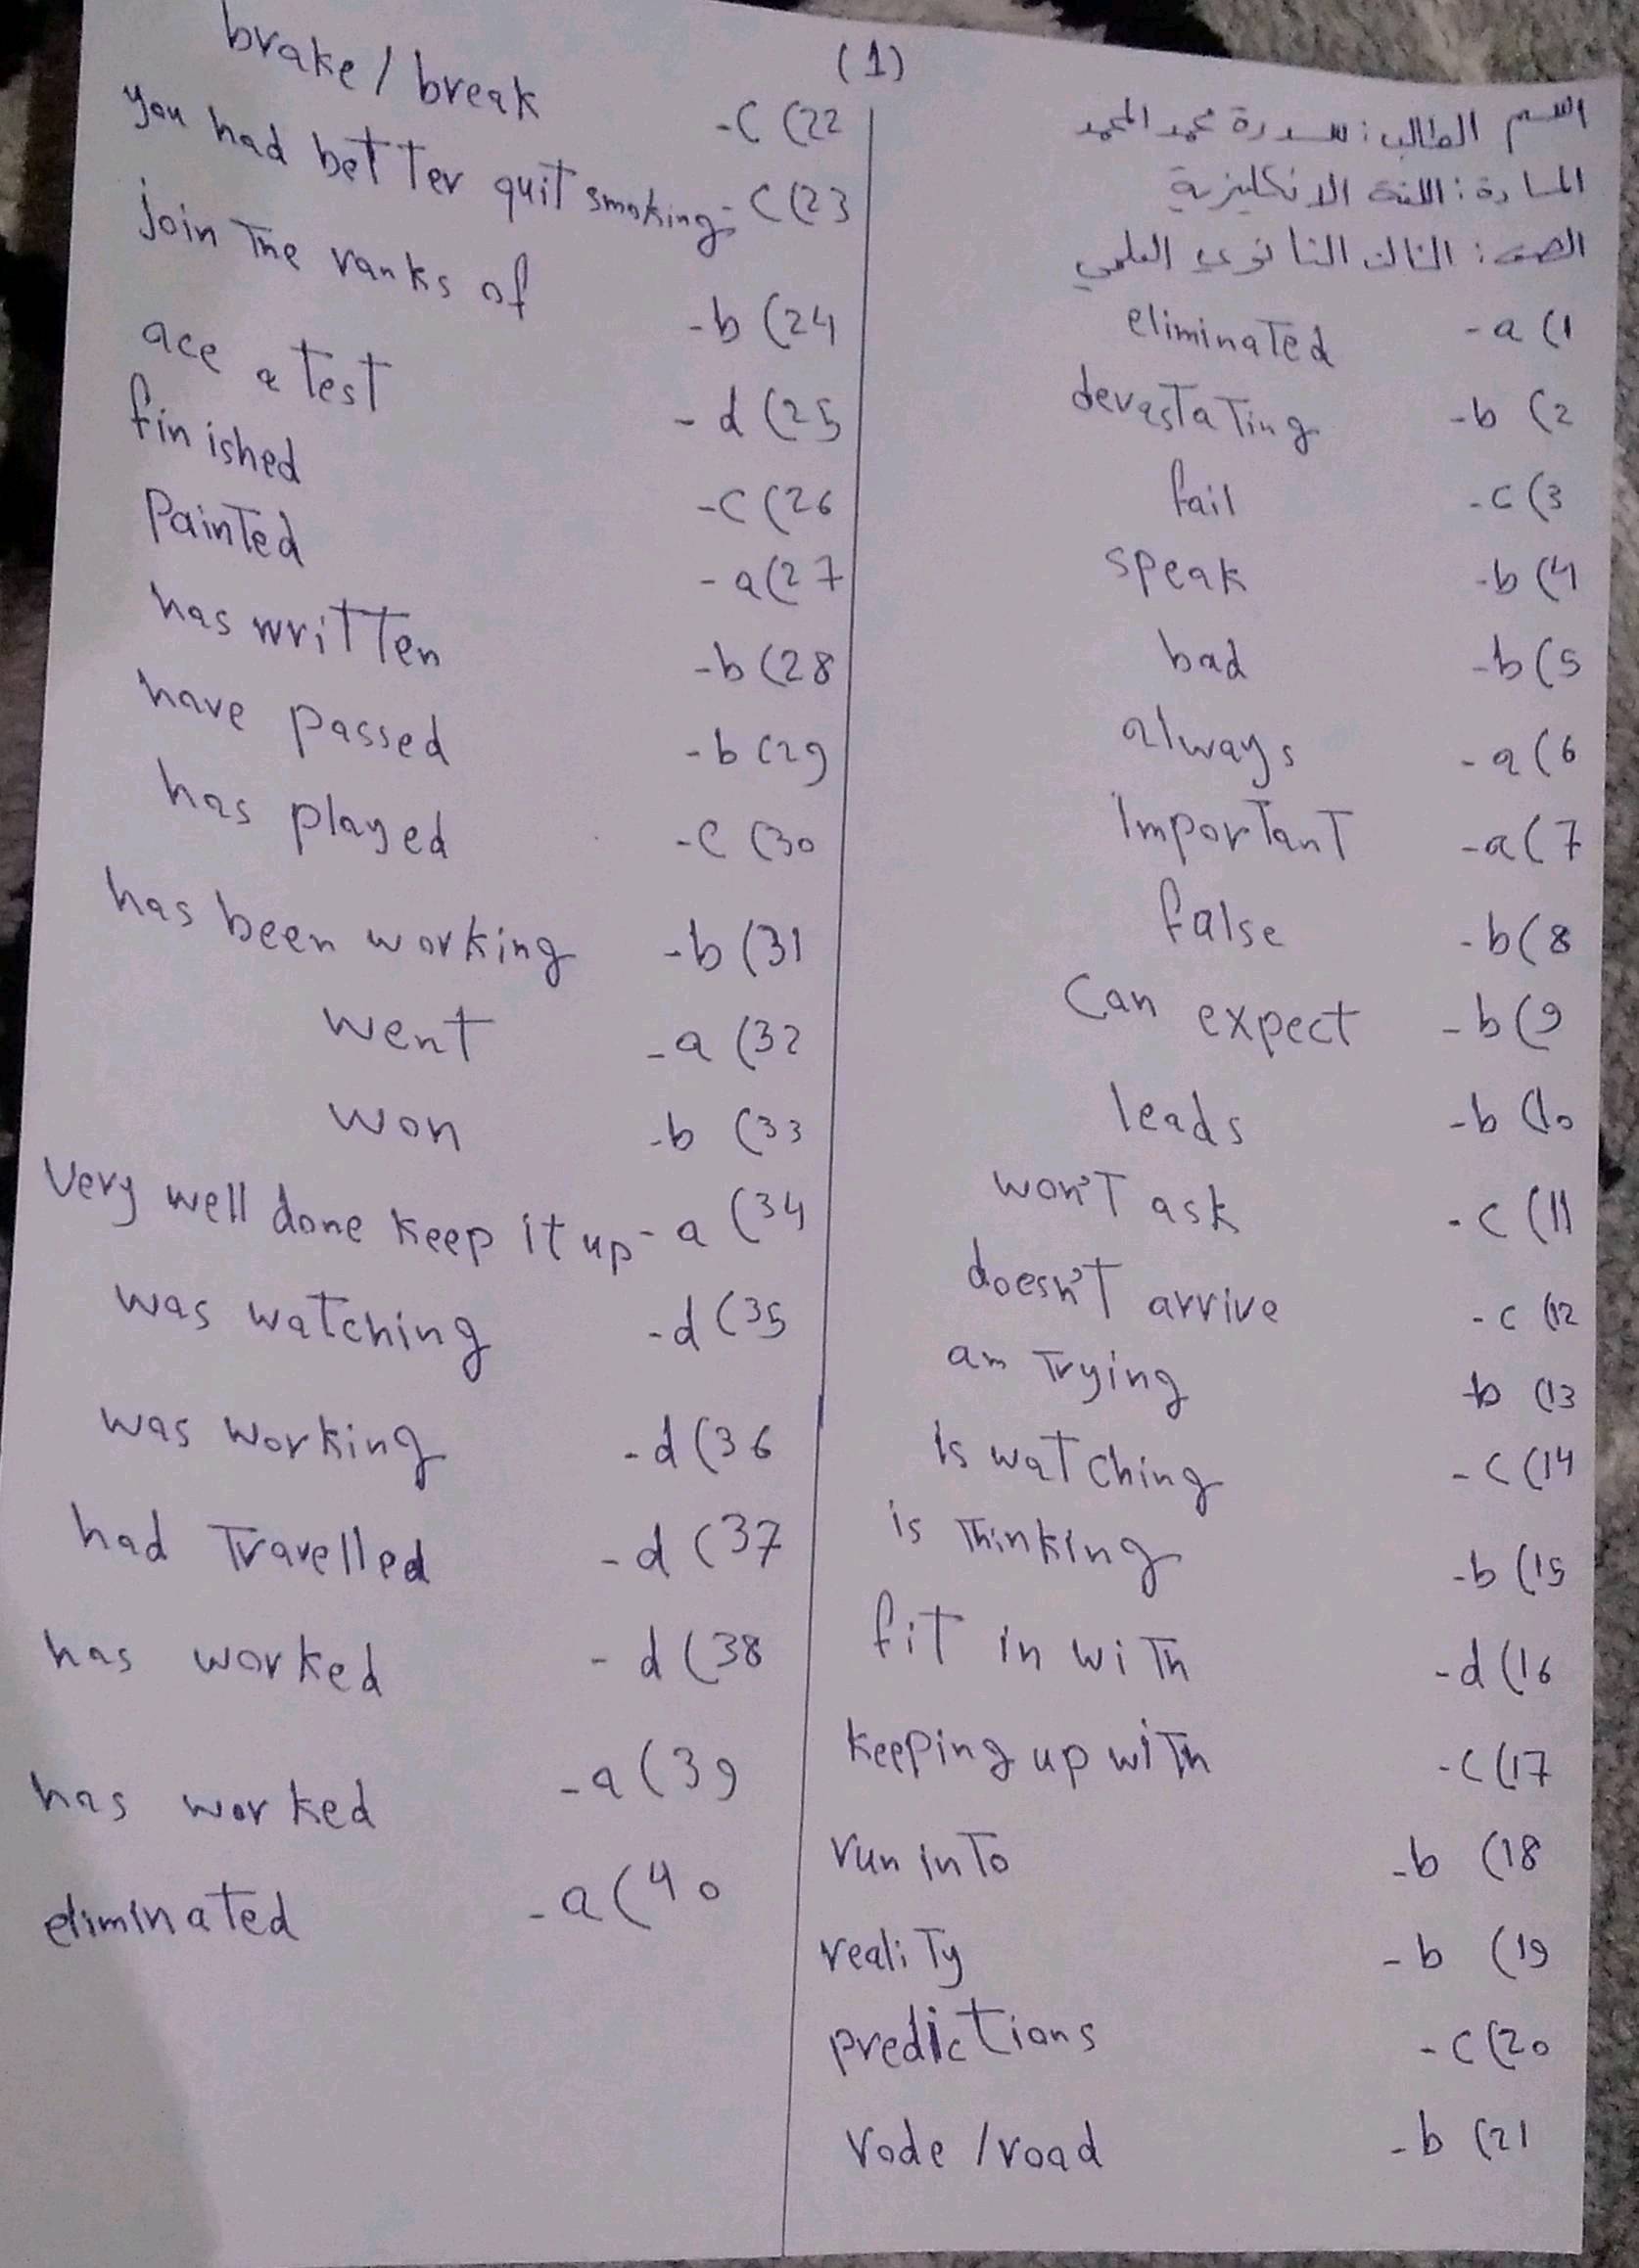 (1)
اسم الطالب: سدرة محمد المحمد
المادة: اللغة الانكليزية
الصف: الثالث الثانوي العلمي
1) a- eliminated
2) b- devastating
3) c- fail
4) b- speak
5) b- bad
6) a- always
7) a- important
8) b- false
9) b- can expect
10) b- leads
11) c- won't ask
12) c- doesn't arrive
13) b- am trying
14) c- is watching
15) b- is thinking
16) d- fit in with
17) c- keeping up with
18) b- run into
19) b- reality
20) c- predictions
21) b- rode / road
22) c- brake / break
23) c- you had better quit smoking
24) b- join the ranks of
25) d- ace a test
26) c- finished
27) a- painted
28) b- has written
29) b- have passed
30) c- has played
31) b- has been working
32) a- went
33) b- won
34) a- Very well done keep it up
35) d- was watching
36) d- was working
37) d- had travelled
38) d- has worked
39) a- has worked
40) a- eliminated